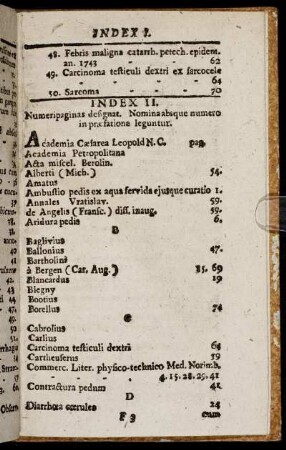 INDEX I.
48. Febris maligna catarrh. petech. epidem.
an. 1743 - - 62
49. Carcinoma testiculi dextri ex sarcocele
- - - - 64
50. Sarcoma - - 70
INDEX II.
Numeri paginas designat. Nomina absque numero
in præfatione leguntur.
Academia Cæsarea Leopold N. C. pag.
Academia Petropolitana
Acta miscel. Berolin.
Alberti (Mich.) 54.
Amatus
Ambustio pedis ex aqua fervida ejusque curatio 1.
Annales Vratislav. 59.
de Angelis (Fransc.) diss. inaug. 59.
Aridura pedis 6.
B
Baglivius
Ballonius 47.
Bartholini
à Bergen (Car. Aug.) 15. 69
Blancardus 19
Blegny
Bootius
Borellus 74
C
Cabrolius
Carlius
Carcinoma testiculi dextri 64
Cartheuserus 59
Commerc. Liter. physico-technico Med. Norimb.
- - - 4. 15. 28. 29. 41
Contractura pedum 41.
D
Diarrhœa cœrulea 24
F 3 cum